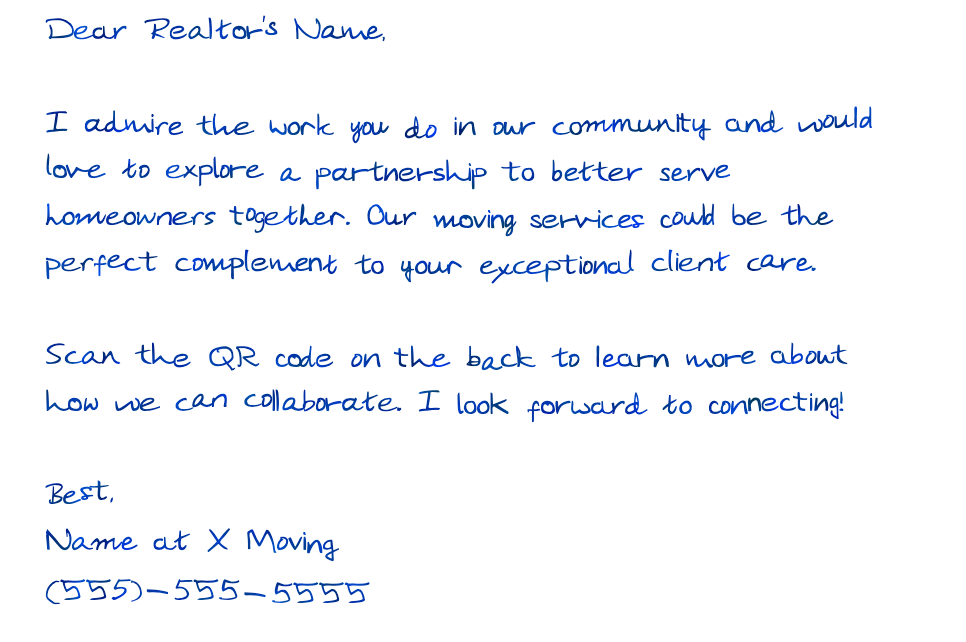 Dear Realtor's Name,
I admire the work you do in our community and would
love to explore a partnership to better serve
homeowners together. Our moving services could be the
perfect complement to your exceptional client care.
Scan the QR code on the back to learn more about
how we can collaborate. I look forward to connecting!
Best,
Name at X Moving
(555)-555-5555